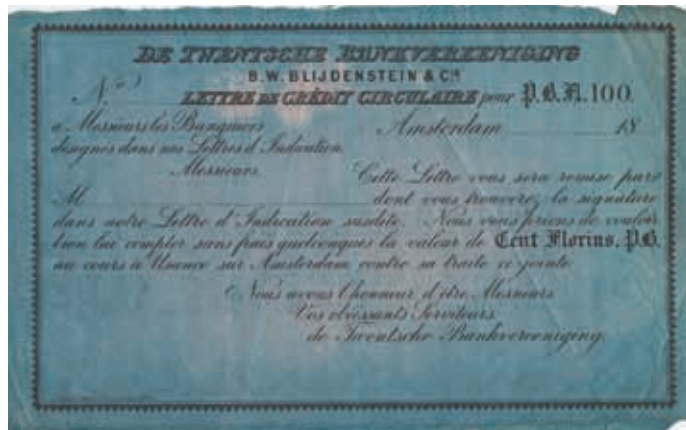 DE TWENTSCHE BANKVEREENIGING
B.W. BLIJDENSTEIN & Cie
No
LETTRE DE CRÉDIT CIRCULAIRE pour P.B.Fl. 100.
a Messieurs les Banquiers Amsterdam 18
désignés dans nos Lettres d'Indication.
Messieurs,
Cette Lettre vous sera remise par
M dont vous trouverez la signature
dans notre Lettre d'Indication susdite. Nous vous prions de vouloir
bien lui compter sans frais quelconques la valeur de Cent Florins, P.B.
au cours à Usance sur Amsterdam contre sa traite ci-jointe.
Nous avons l'honneur d'être, Messieurs
Vos obéissants Serviteurs
de Twentsche Bankvereeniging.